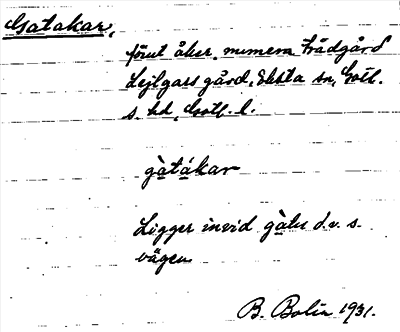 Gatakar,
förut åker, numera trädgård
Lejlgars gård, Eksta sn, Gotl.
s. hd, Gotl. l.
gàtákar
Ligger invid gàtu d.v.s.
vägen
B. Bolin 1931.